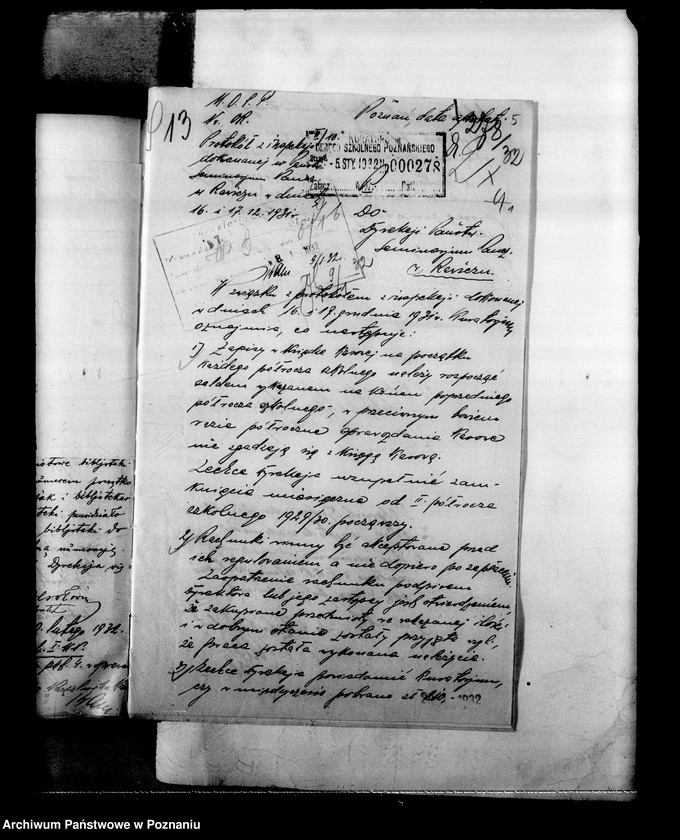 M.O.S.P.
913
Nr. II.
Poznań, data
5
Protokół z inspekcji
dokonanej w Państ.
Seminarjum Naucz.
w Rawiczu w dniach
16. i 17. 12. 1931r.
KURATORJUM
OKRĘGU SZKOLNEGO POZNAŃSKIEGO
-5.STY.1932 000278
Załącz.
Do
Dyrekcji Państw.
Seminarjum Naucz.
w Rawiczu.
9/1.32.
W związku z protokółem z inspekcji dokonanej
w dniach 16. i 17. grudnia 1931r. Kuratorjum
oznajmia, co następuje:
1) Zapisy w Księdze Kasowej na początku
każdego półrocza szkolnego należy rozpocząć
saldem wykazanem na końcu poprzedniego
półrocza szkolnego, w przeciwnym bowiem
razie półroczne sprawozdania kasowe
nie zgadzają się z Księgą Kasową.
Zechce Dyrekcja uzupełnić zam-
knięcia miesięczne od II półrocza
szkolnego 1929/30. począwszy.
2) Rachunki winny być akceptowane przed
ich regulowaniem a nie dopiero po zapłaceniu.
Zaopatrzenie rachunku podpisem
Dyrektora lub jego zastępcy jest stwierdzeniem,
że zakupione przedmioty we wskazanej ilości
i w dobrym stanie zostały przyjęte wzgl.
że praca została wykonana należycie.
3) Zechce Dyrekcja powiadomić Kuratorjum,
czy w międzyczasie pobrane
1932
bibljoteki
i bibljotekar
bibljoteki do
numerację
Dyrekcja
lutego 1932.
Archiwum Państwowe w Poznaniu